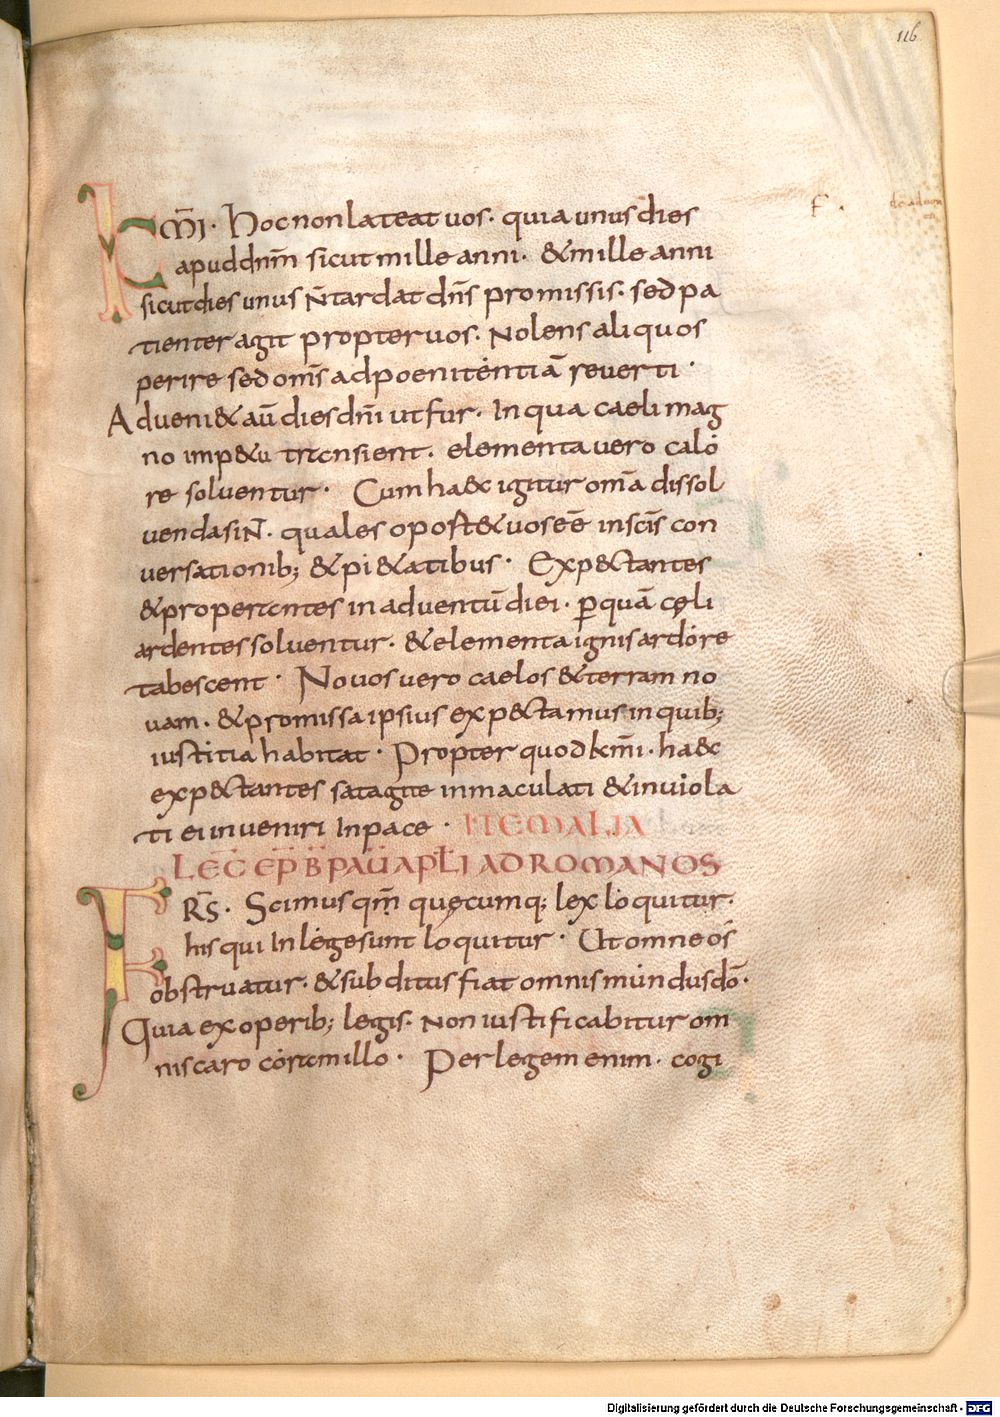 116
K̄MI· Hoc non lateat uos· quia unus dies
apud dnm̄ sicut mille anni· & mille anni
sicut dies unus N̄ tardat dn̄s promissis· sed pa
tienter agit propter uos· Nolens aliquos
perire sed om̄s ad poenitentiā reuerti·
Adueni& aū dies dn̄i ut fur· In qua caeli mag
no imp&u transient· elementa uero calo
re soluentur· Cum haec igitur om̄a dissol
uenda siN̄· quales oport& uos eē in sc̄is con
uersationib; & pi&atibus· Exp&tantes
& properantes in aduentū diei· p̱ quā cęli
ardentes soluentur· & elementa ignis ardore
tabescent· Nouos uero caelos & terram no
uam· & promissa ipsius exp&tamus in quib;
iustitia habitat· Propter quod km̄i· haec
exp&tantes satagite inmaculati & inuiola
ti ei inueniri In pace· ITEM ALIA
LEC̄ EP̄ B̄ PAŪ APL̄I AD ROMANOS
FR̄S· Scimus qm̄ quęcumq; lex loquitur·
his qui In lege sunt loquitur· Ut omne os
obstruatur· & subditus fiat omnis mundus dō·
Quia ex operib; legis· Non iustificabitur om
nis caro coram illo· Per legem enim· cogi
Digitalisierung gefördert durch die Deutsche Forschungsgemeinschaft - DFG